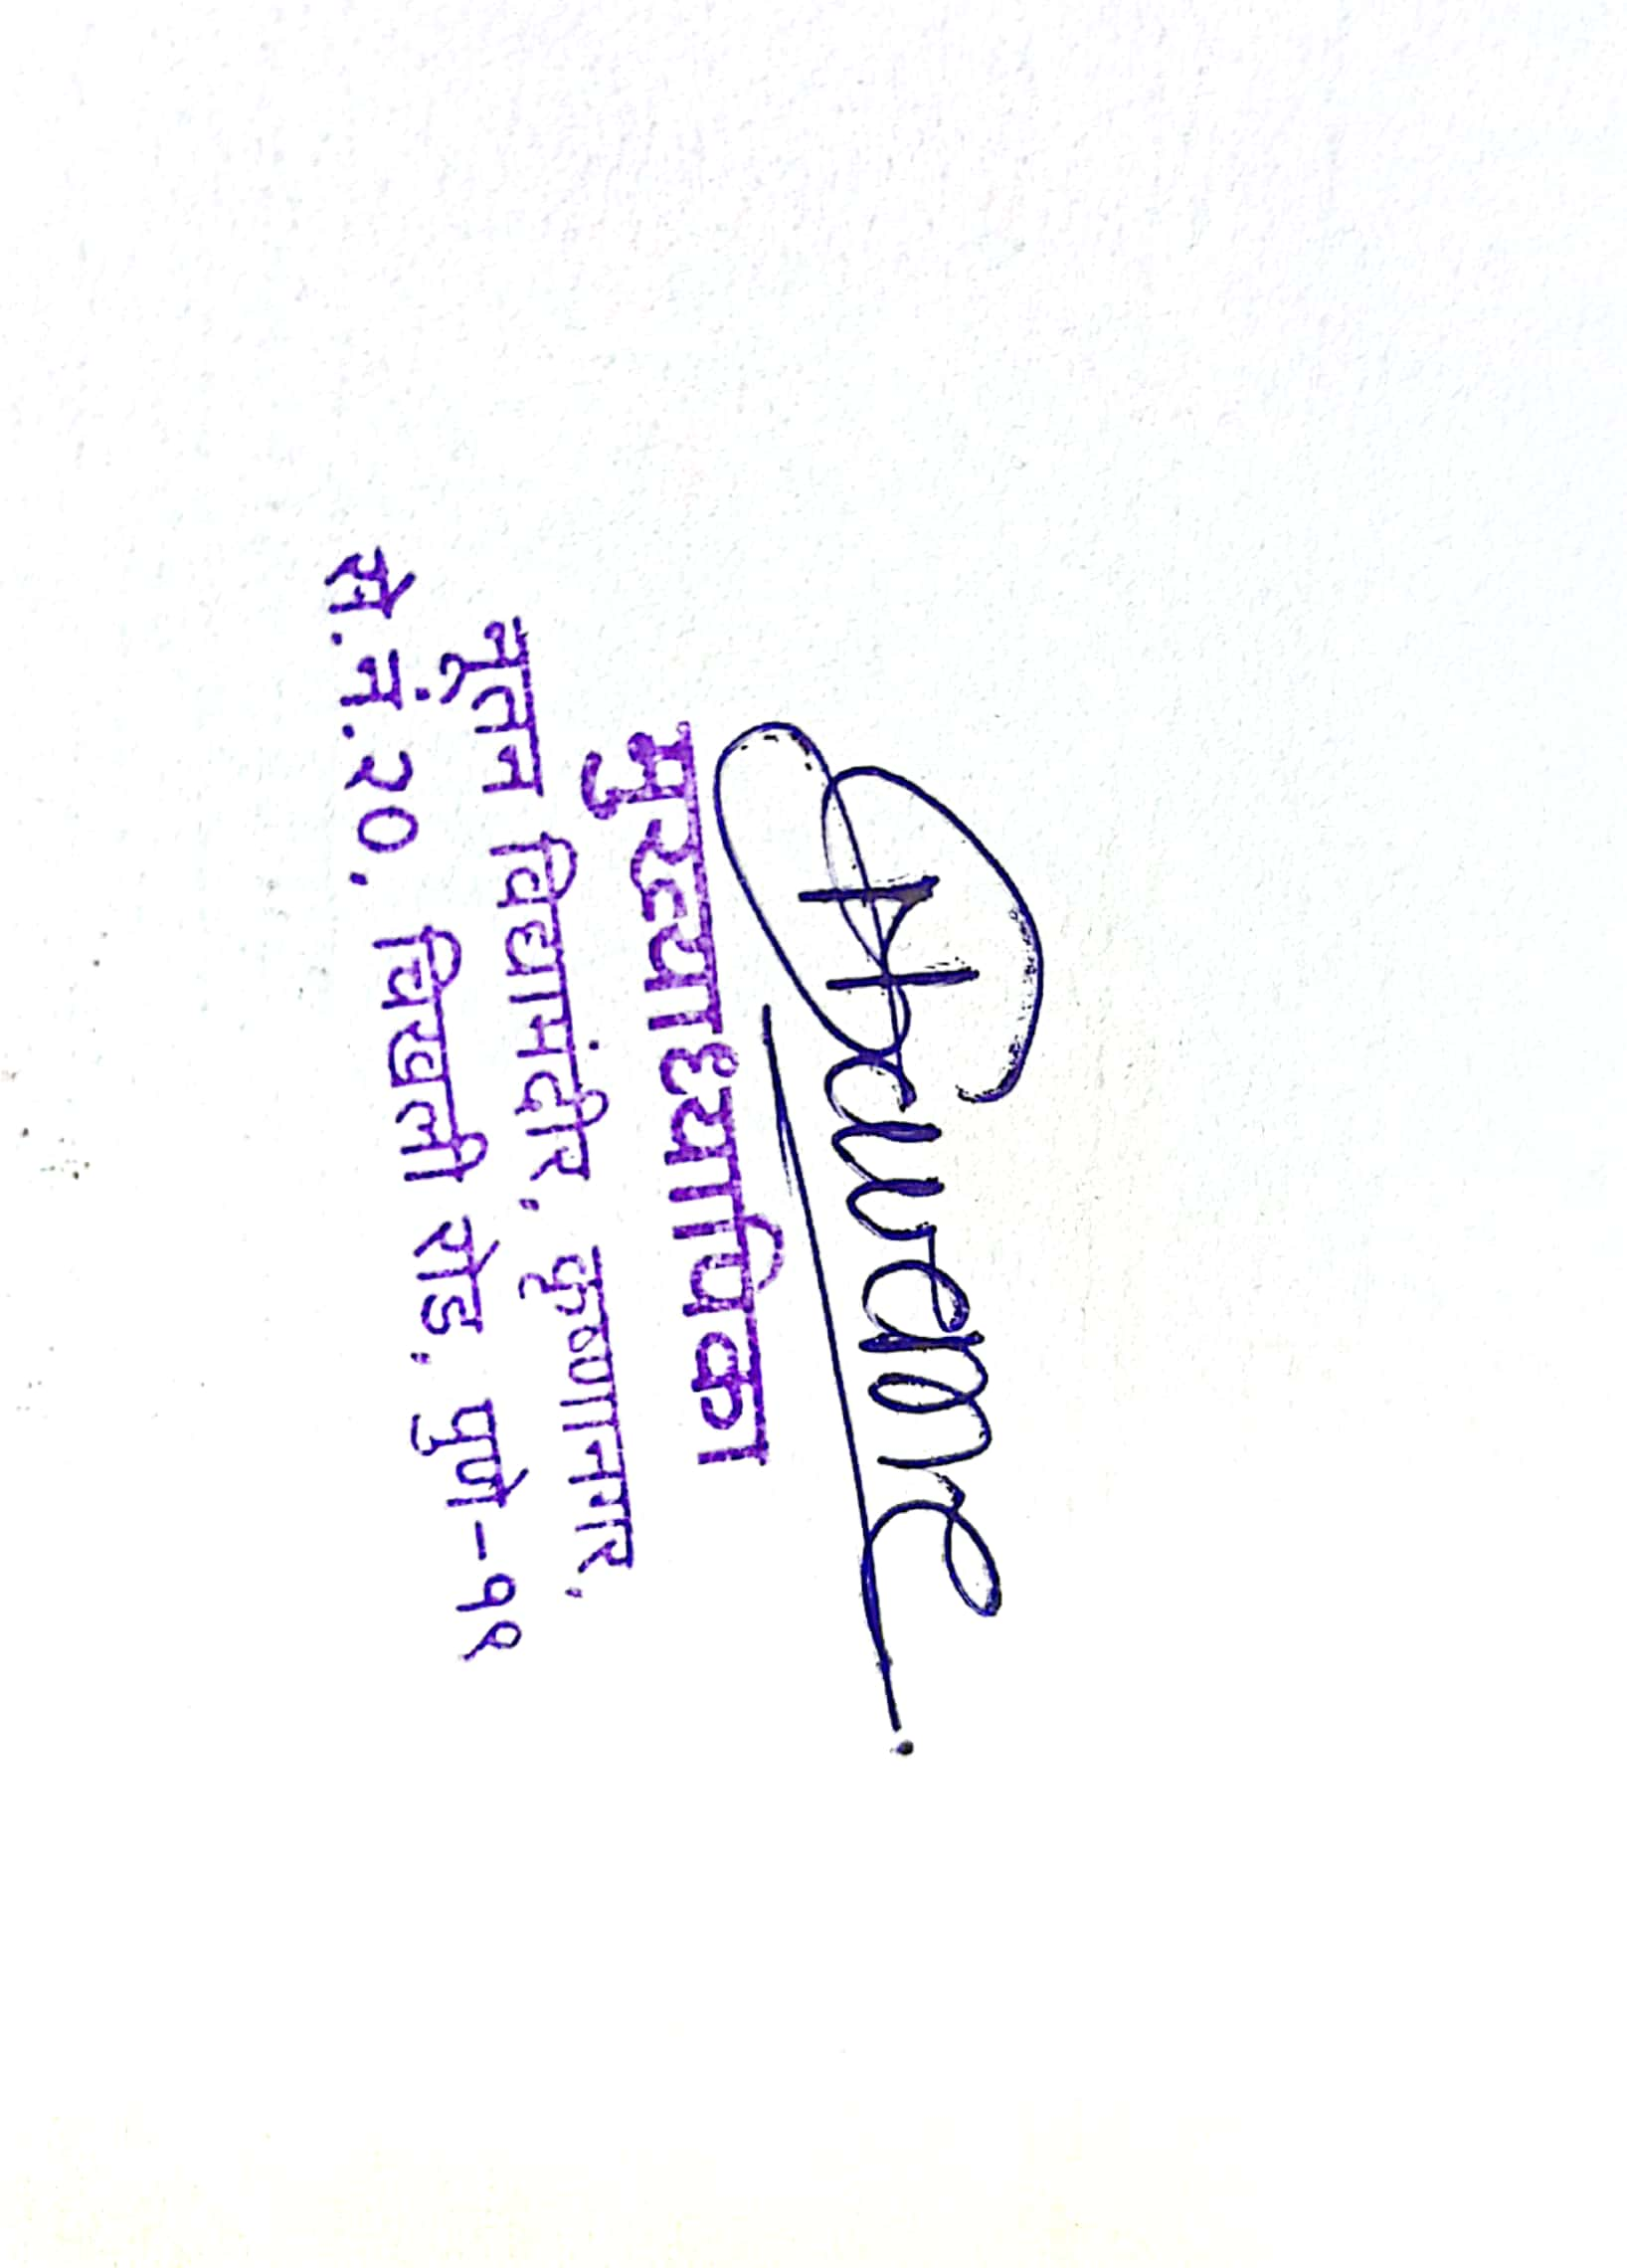 मुख्याध्यापिका
नूतन विद्यामंदीर, कृष्णानगर,
से.नं.२०, चिखली रोड, पुणे-१९